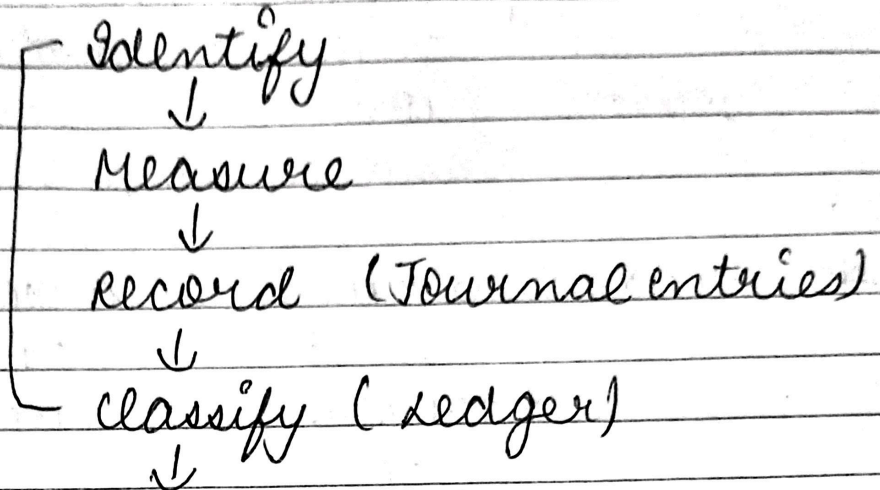 Identify
↓
Measure
↓
Record (Journal entries)
↓
Classify (Ledger)
↓